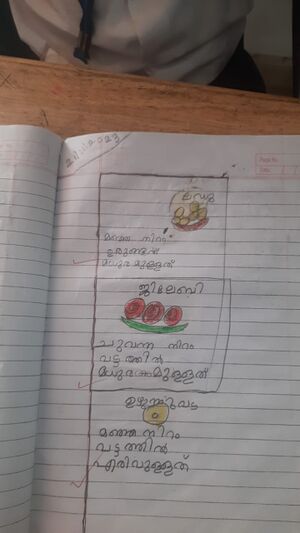 21/11/2023
Page No.
Date
ലഡു
മഞ്ഞ നിറം
ഉരുണ്ടത്
മധുരമുള്ളത്
ജിലേബി
ചുവന്ന നിറം
വട്ടത്തിൽ
മധുരമുള്ളത്
ഉഴുന്നുവട
മഞ്ഞനിറം
വട്ടത്തിൽ
എരിവുള്ളത്